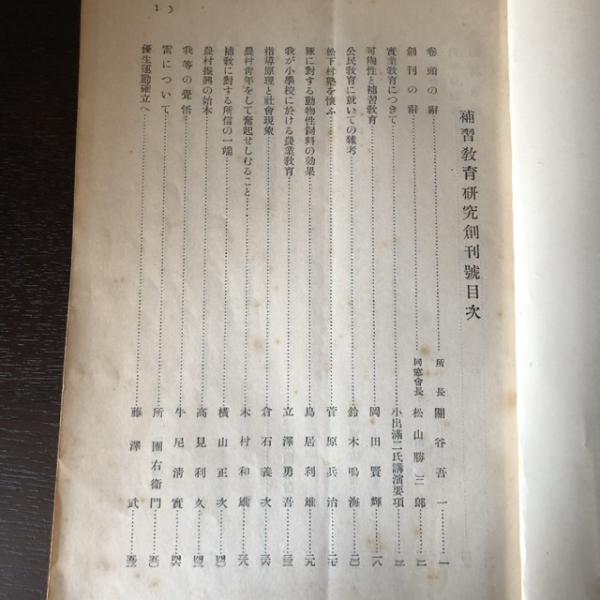 補習教育研究創刊號目次
卷頭の辭 所長 關谷吾一 一
創刊の辭 同窓會長 松山勝三郎 二
實業教育につきて 小出滿二氏講演要項 三
可陶性と補習教育 岡田賢輝 一八
公民教育に就いての雜考 鈴木鳴海 二〇
松下村塾を懷ふ 菅原兵治 二七
豚に對する動物性飼料の効果 鳥居利雄 二九
我が小學校に於ける農業教育 立澤勇吾
指導原理と社會現象 倉石義次
農村青年をして奮起せしむること 木村和雄
補教に對する所信の一端 橫山正次
農村振興の始末 高見利久
我等の覺悟 牛尾淸實
雷について 所團右衞門
優生運動確立へ 藤澤武